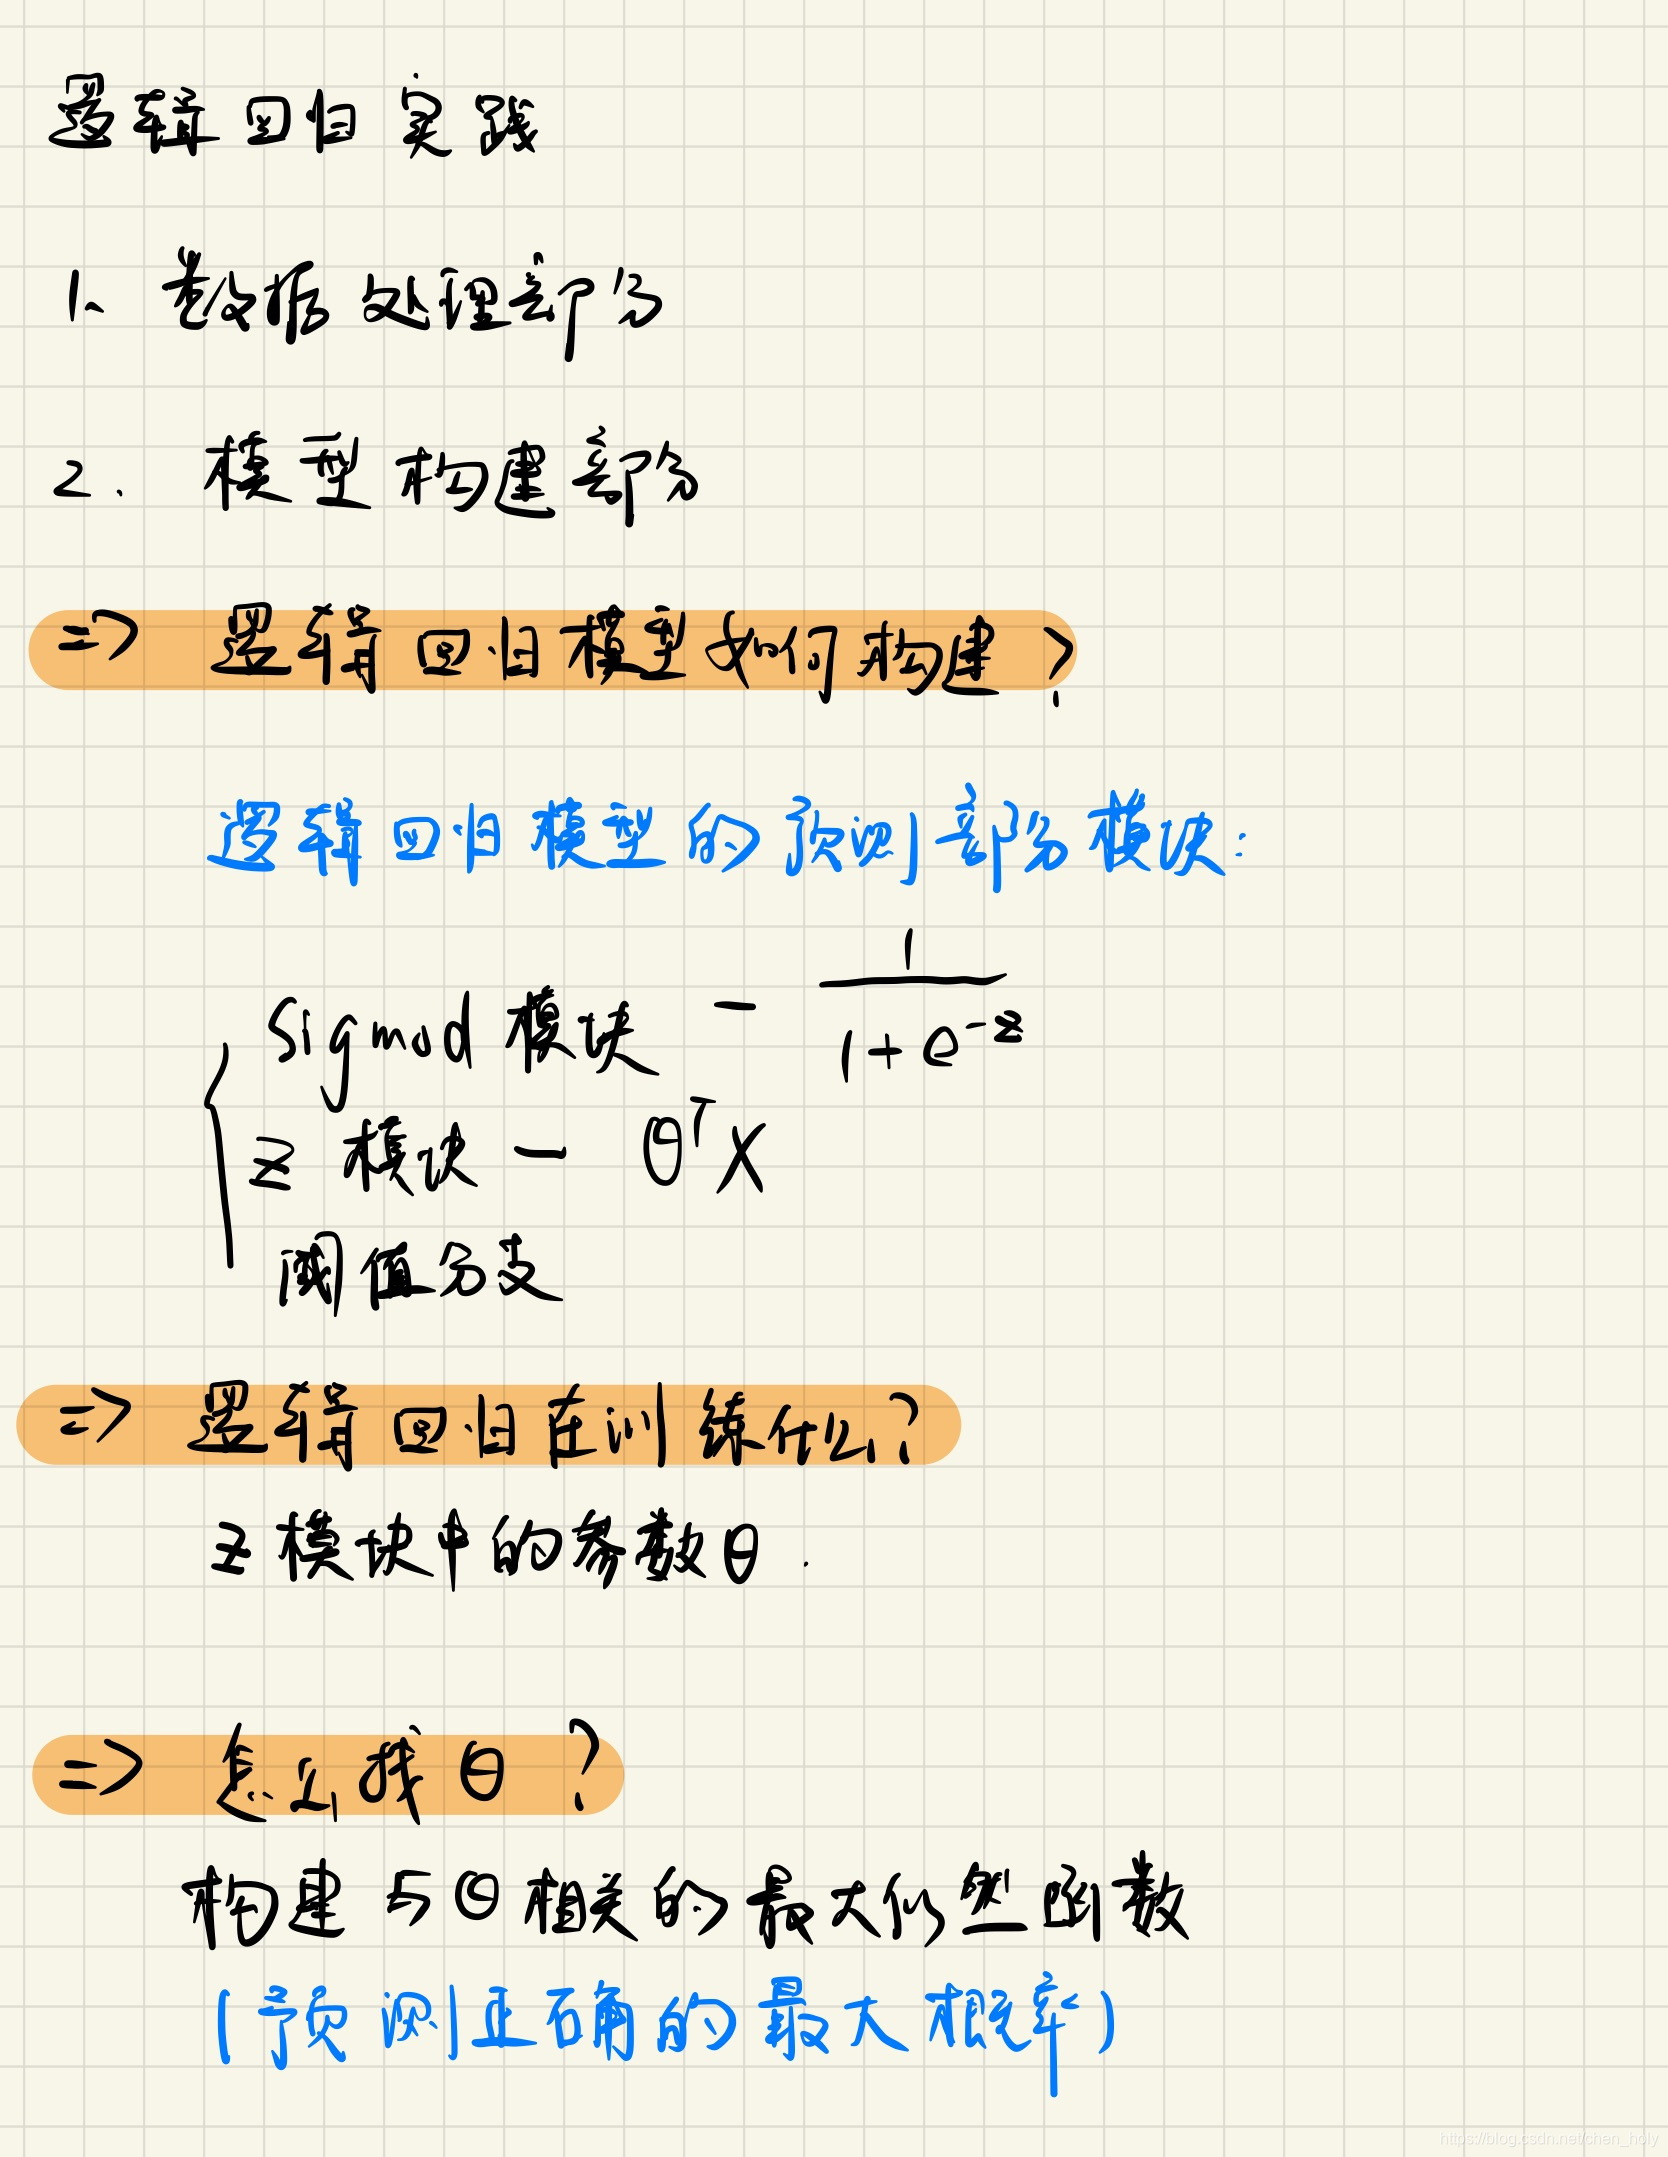 逻辑回归实践
1、数据处理部分
2. 模型构建部分
=> 逻辑回归模型如何构建?
逻辑回归模型的预测部分模块:
Sigmod 模块 — 1/(1+e^-z)
z 模块 — θ^T X
阈值分支
=> 逻辑回归在训练什么?
z模块中的参数θ.
=> 怎么找θ?
构建与θ相关的最大似然函数
(预测正确的最大概率)
https://blog.csdn.net/chen_holy